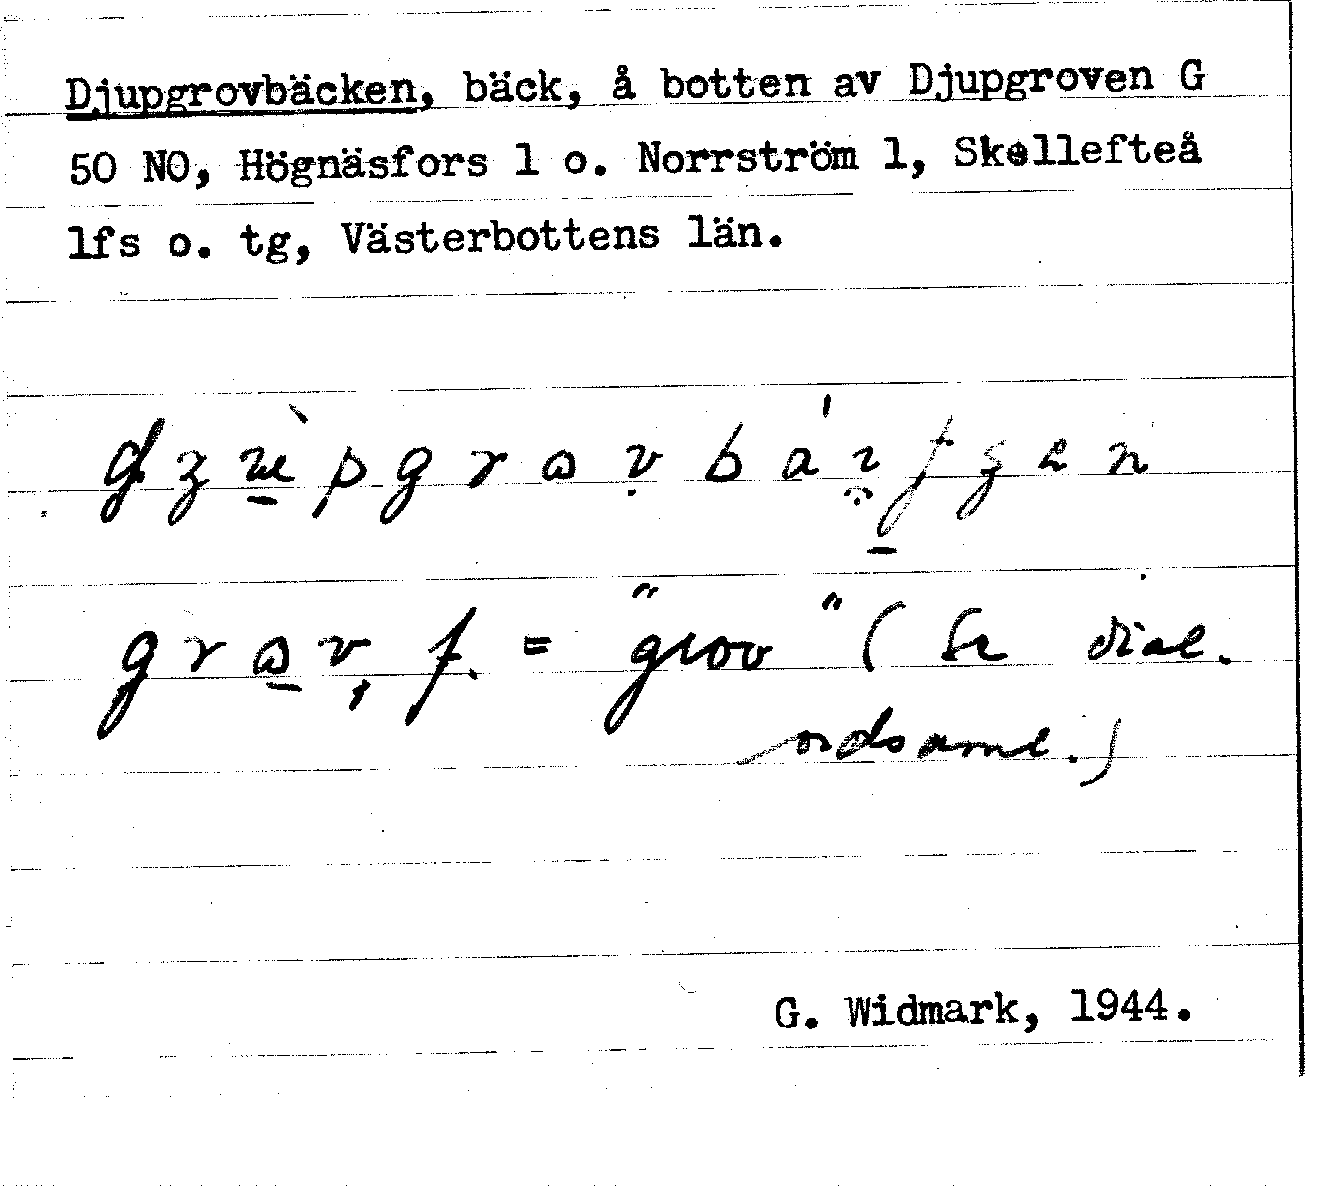 Djupgrovbäcken, bäck, å botten av Djupgroven G
50 NO, Högnäsfors 1 o. Norrström 1, Skellefteå
lfs o. tg, Västerbottens län.
f. = "grov" (Se dial.
ordsaml.)
G. Widmark, 1944.